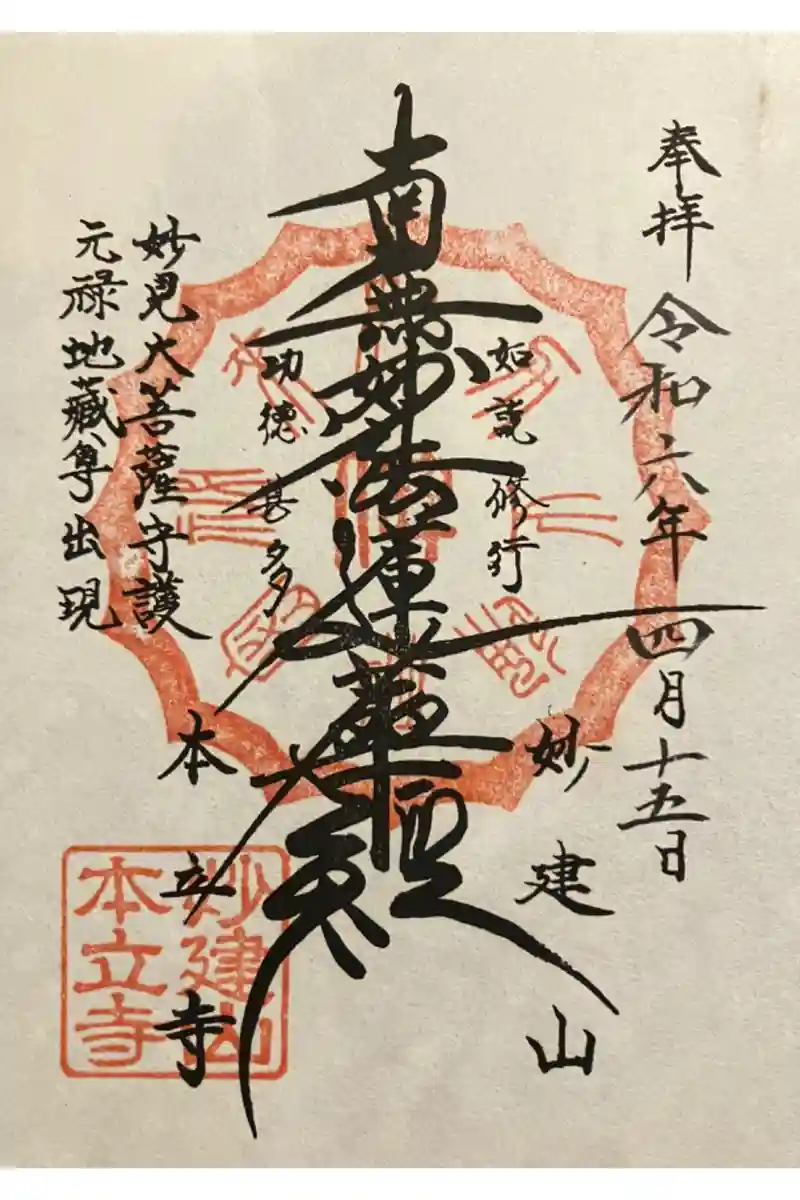 奉拝 令和六年四月十五日
如説修行
妙建山
南無妙法蓮華経
功徳甚多
本立寺
妙見大菩薩守護
元禄地蔵尊出現
妙建山
本立寺